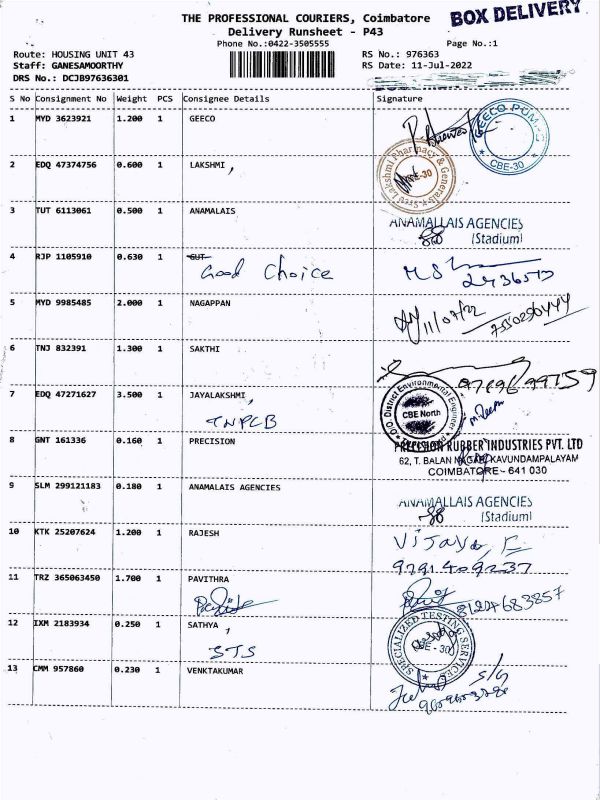 THE PROFESSIONAL COURIERS, Coimbatore
BOX DELIVERY
Delivery Runsheet - P43
Phone No.:0422-3505555
Page No.:1
Route: HOUSING UNIT 43
RS No.: 976363
Staff: GANESAMOORTHY
RS Date: 11-Jul-2022
DRS No.: DCJB97636301
S No Consignment No Weight PCS Consignee Details Signature
1 MYD 3623921 1.200 1 GEECO
GEECO PUMPS
CBE-30
2 EDQ 47374756 0.600 1 LAKSHMI,
Sree Lakshmi Pharmacy & Generals
CBE-30
3 TUT 6113061 0.500 1 ANAMALAIS
ANAMALLAIS AGENCIES
(Stadium)
4 RJP 1105910 0.630 1 GUT
Good Choice
5 MYD 9985485 2.000 1 NAGAPPAN
11/07/22
6 TNJ 832391 1.300 1 SAKTHI
7 EDQ 47271627 3.500 1 JAYALAKSHMI,
TNPCB
O/O. District Environmental Engineer
CBE North
8 GNT 161336 0.160 1 PRECISION
PRECISION RUBBER INDUSTRIES PVT. LTD
62, T. BALAN NAGAR, KAVUNDAMPALAYAM
COIMBATORE - 641 030
9 SLM 299121183 0.180 1 ANAMALAIS AGENCIES
ANAMALLAIS AGENCIES
(Stadium)
10 KTK 25207624 1.200 1 RAJESH
11 TRZ 365063450 1.700 1 PAVITHRA
8124683857
12 IXM 2183934 0.250 1 SATHYA,
STS
SPECIALIZED TESTING SERVICES
CBE - 30
13 CMM 957860 0.230 1 VENKTAKUMAR